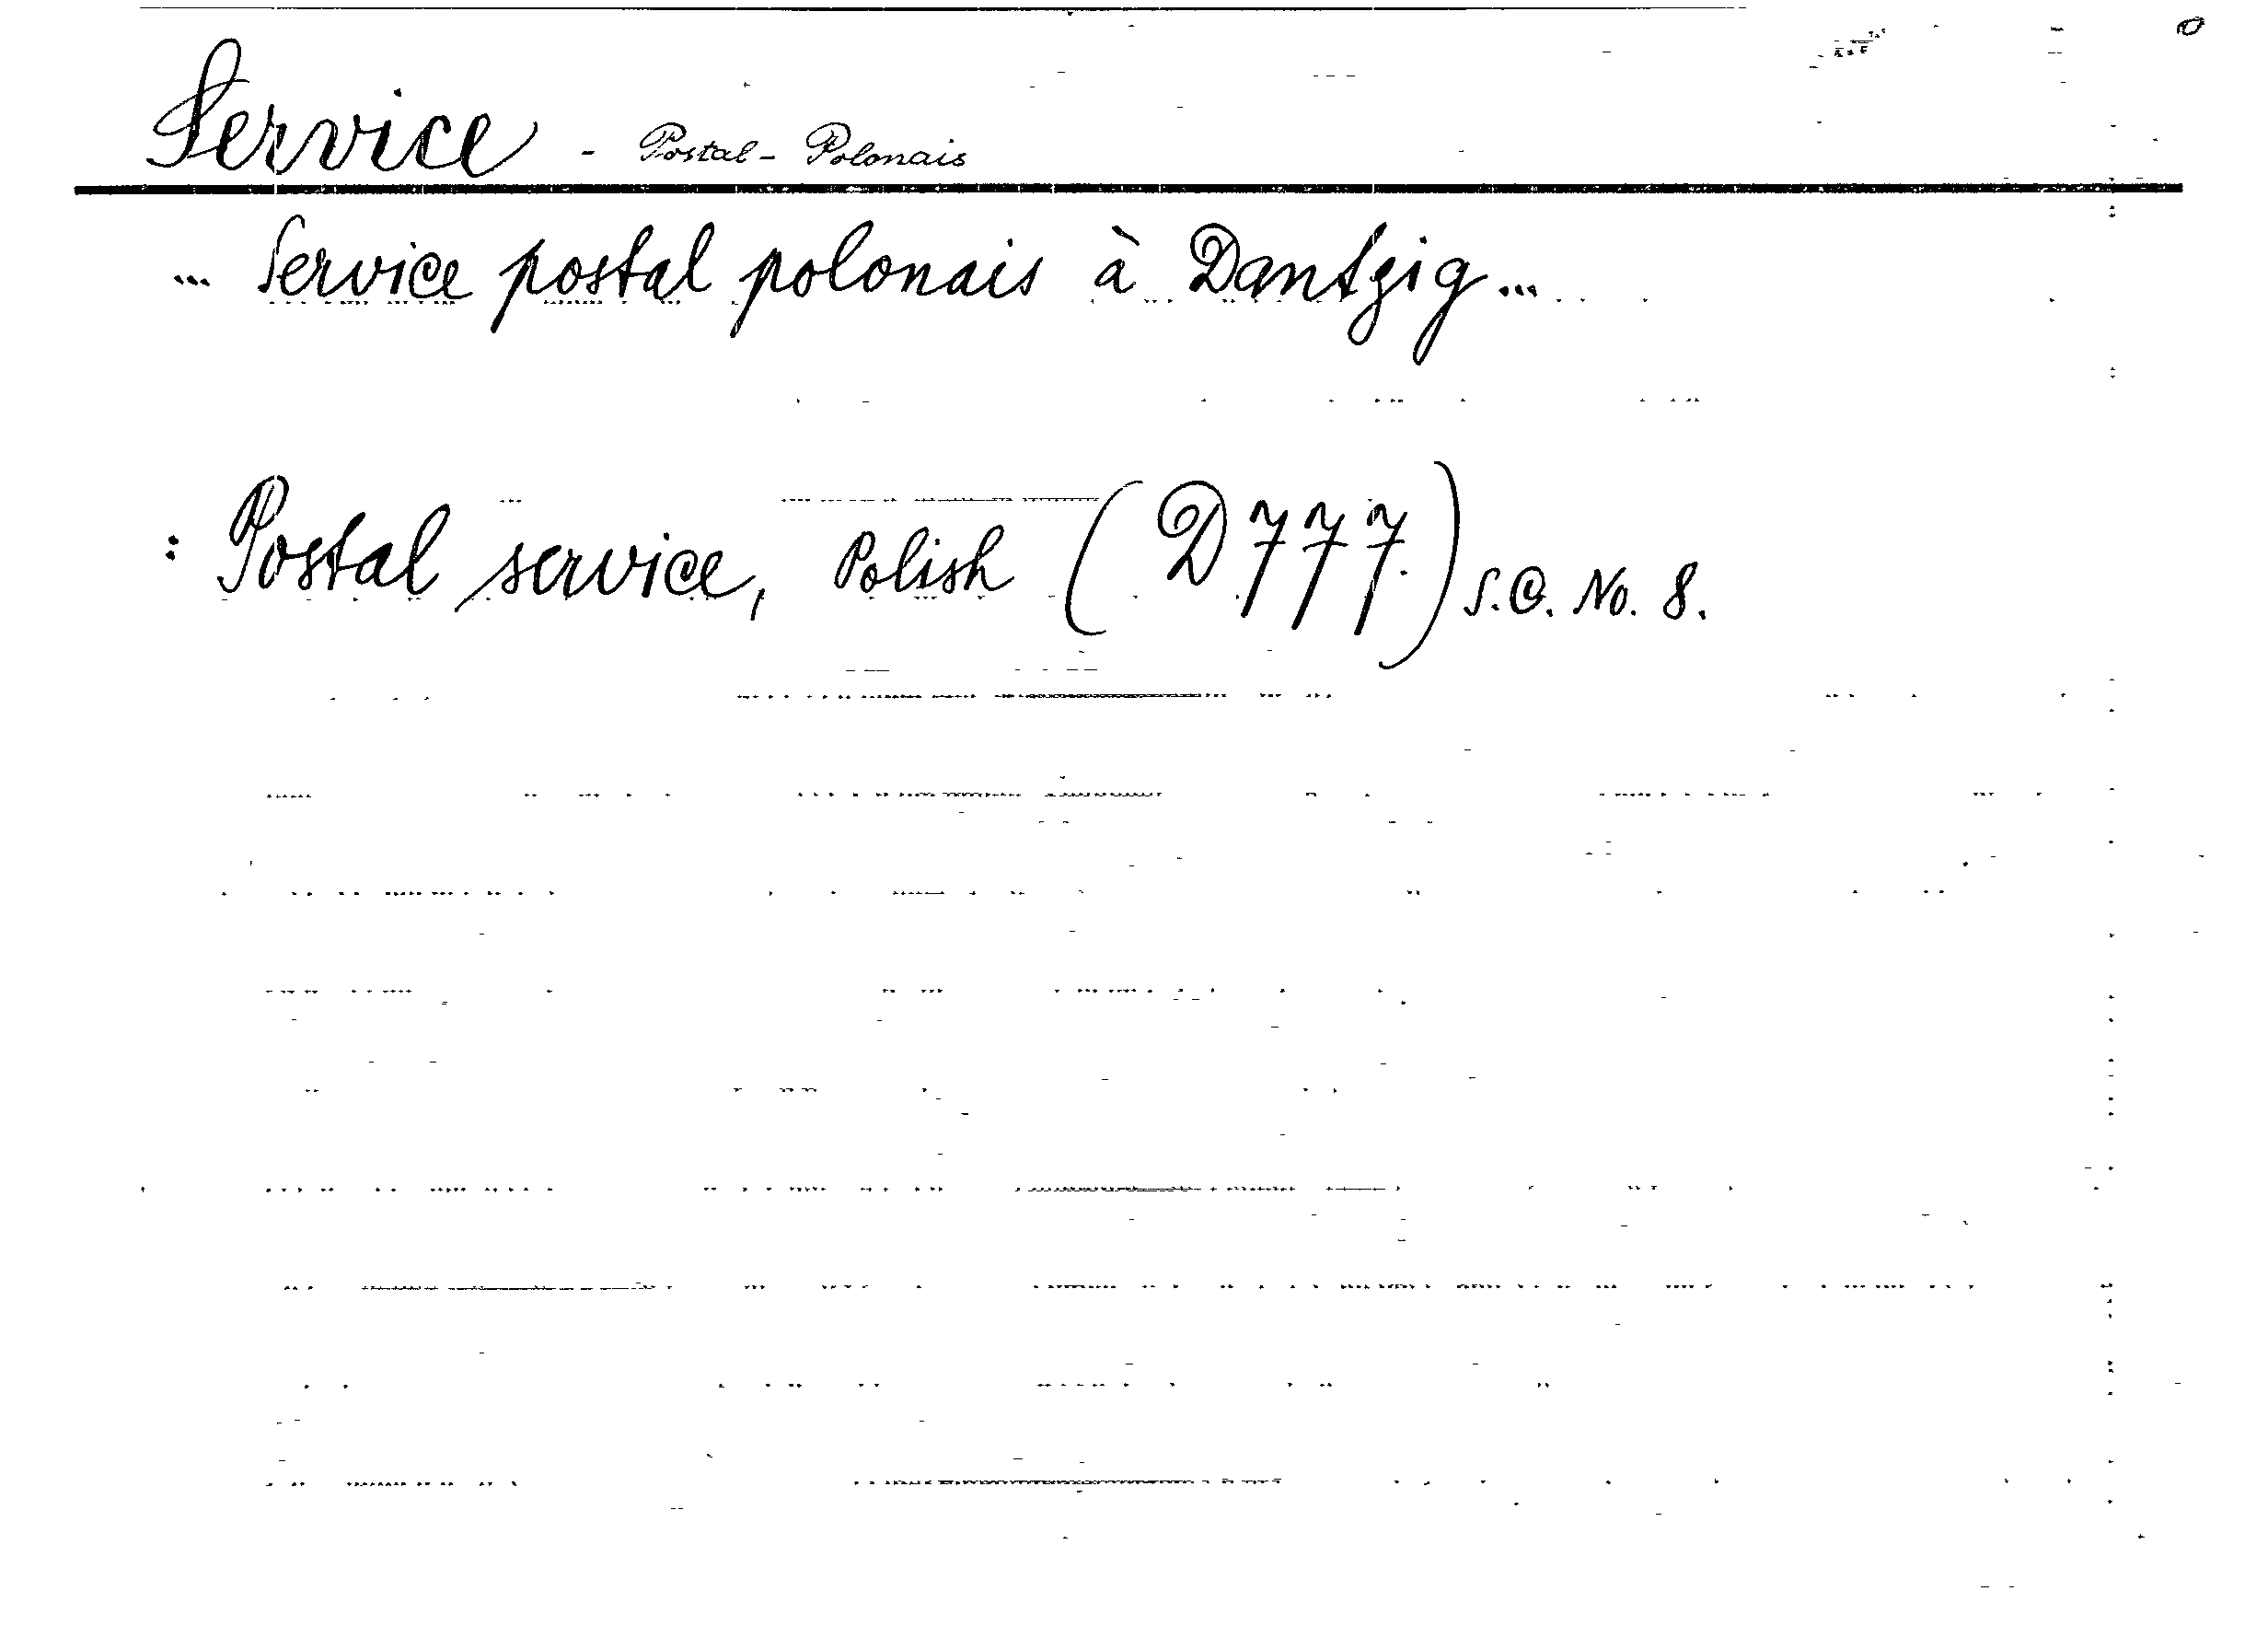 Service - Postal - Polonais
... Service postal polonais à Dantzig ...
: Postal service, Polish (D777.) S.C. No. 8.